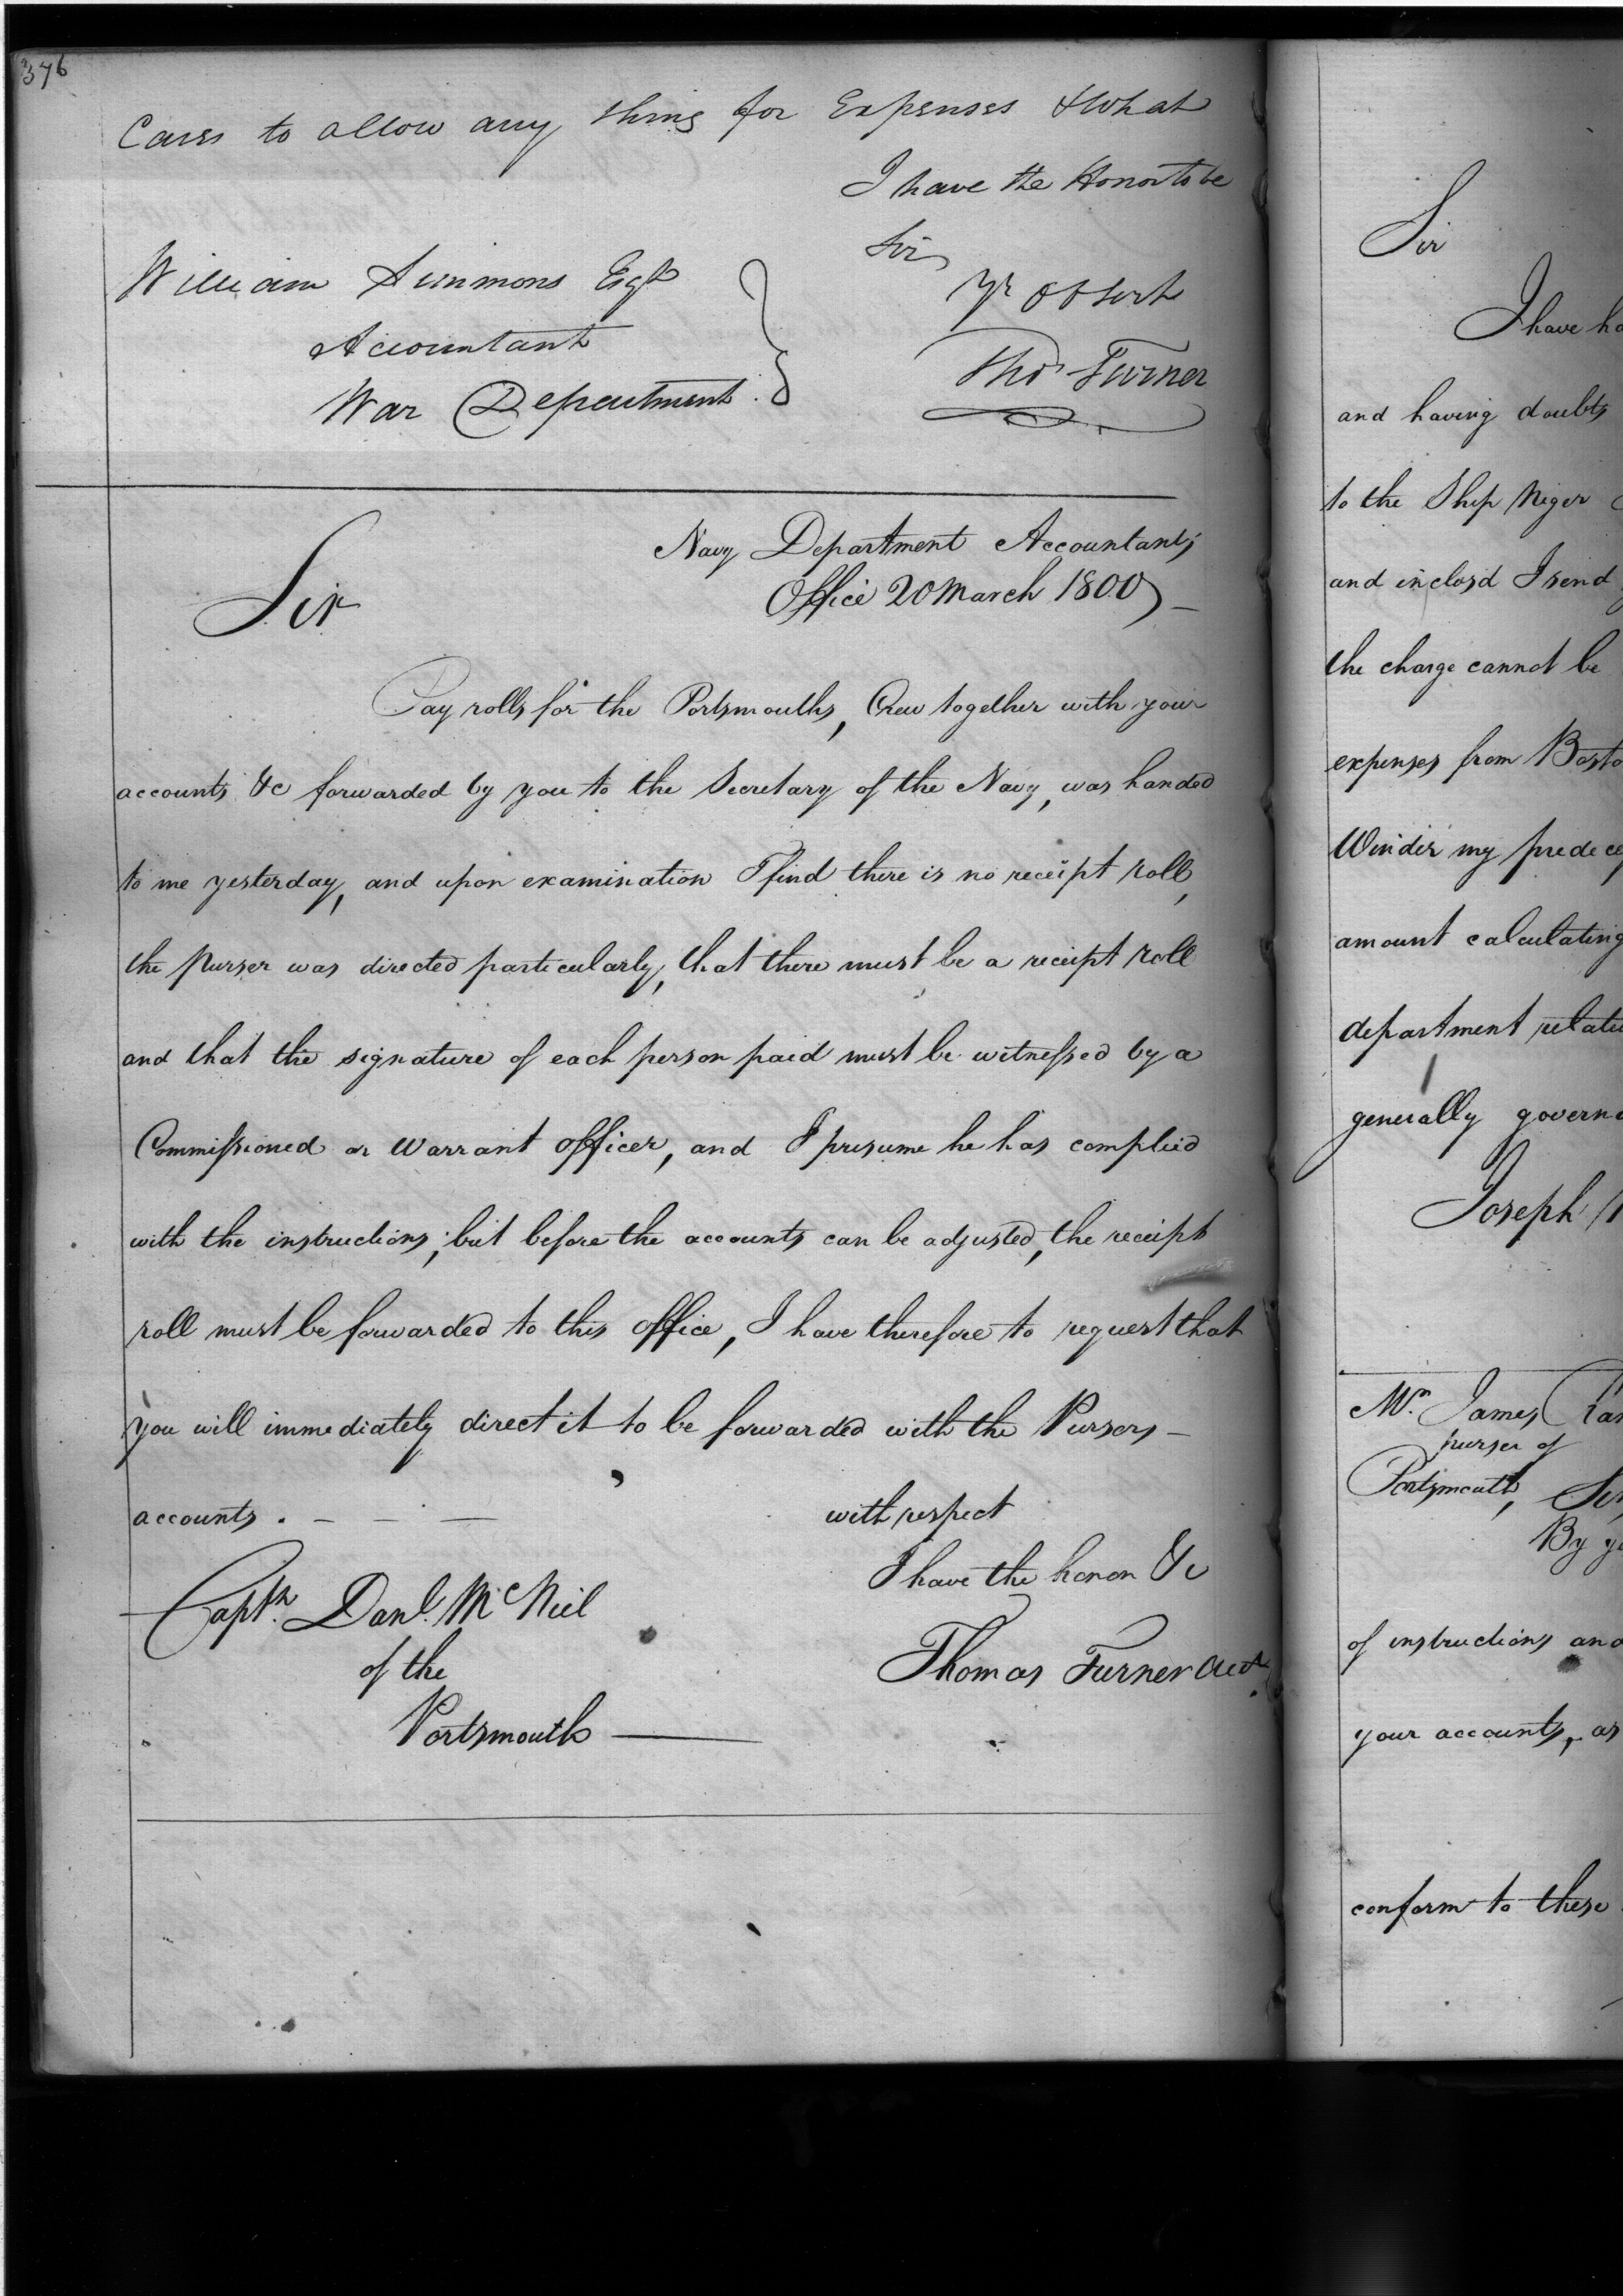 376
Cases to allow any thing for Expenses & What
I have the Honor to be
Sir
Yr Ob Servt
Thos Turner
William Simmons Esqr
Accountant
War Department
Navy Department Accountants
Office 20 March 1800
Sir
Pay rolls for the Portsmouths, Crew together with your
accounts &c forwarded by you to the Secretary of the Navy, was handed
to me yesterday, and upon examination I find there is no receipt roll,
the Purser was directed particularly, that there must be a receipt roll
and that the signature of each person paid must be witnessed by a
Commissioned or Warrant officer, and I presume he has complied
with the instructions; but before the accounts can be adjusted, the receipt
roll must be forwarded to this office, I have therefore to request that
you will immediately direct it to be forwarded with the Pursers
accounts. — — —
with respect
I have the honor &c
Thomas Turner Acct.
Captn. Danl. McNiel
of the
Portsmouth
Sir
I have
and having doubts
to the Ship Niger
and inclosd I send
the charge cannot be
expenses from
Winder my
amount calculating
department
generally
Joseph
Mr. James
purser of
Portsmouth,
By
of instructions
your accounts, as
conform to these